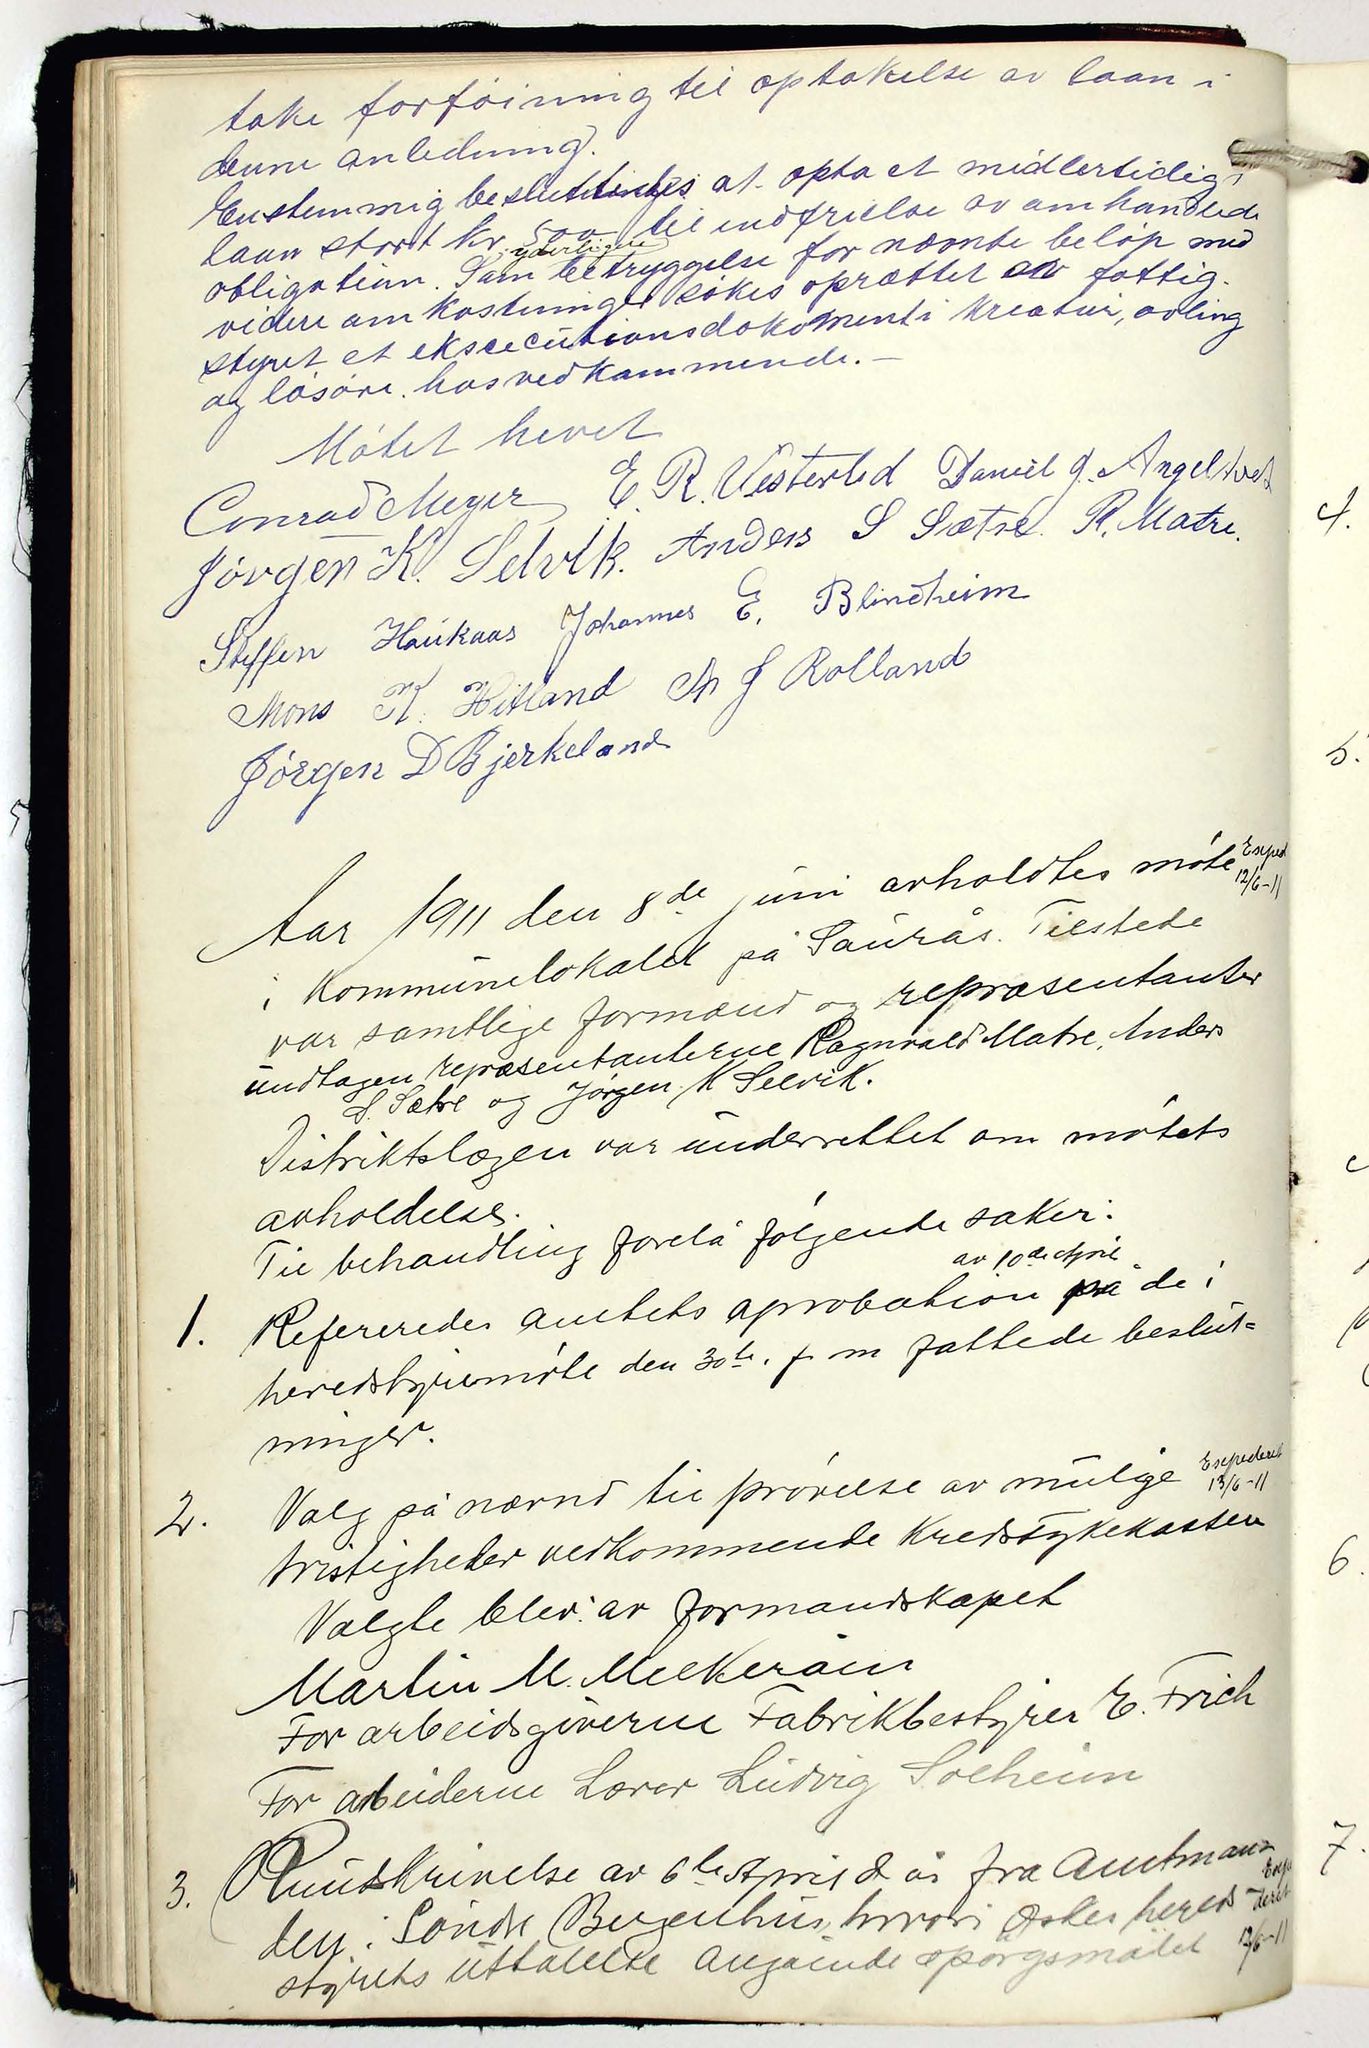 take forføining til optakelse av laan i
denne anledning.
Enstemmig besluttedes at opta et midlertidig
laan stort kr. 500 til indfrielse av omhandlede
obligation. Som yderligere betryggelse for nævnte beløp med
videre omkostninger søkes oprættet av fattig-
styret et eksecutionsdokument i kreatur, avling
og løsøre hos vedkommende. —
Møtet hevet
Conrad Meyer E. R. Vesterlid Daniel J. Angeltveit
Jørgen K. Selvik. Anders S Sætre. R. Matre.
Steffen Haukaas Johannes E. Blindheim
Mons K. Hitland A J Rolland
Jørgen D Bjerkeland
Aar 1911 den 8de juni avholdtes møte
Exped
12/6-11
i Kommunelokalet på Saurås. Tilstede
var samtlige formænd og repræsentanter
undtagen repræsentanterne Ragnvald Matre, Anders
S. Sætre og Jørgen K Selvik.
Distriktslægen var underrettet om møtets
avholdelse.
Til behandling forelå følgende saker:
1. Refereredes amtets aprobation av 10de April på de i
heredstyremøte den 30te. f m fattede beslut-
ninger.
2. Valg på nævnd til prøvelse av mulige
Expederet
13/6-11
tvistigheder vedkommende Kredssykekassen
Valgte blev: av formandskapet
Martin M. Melkeråen
For arbeidsgiverne Fabrikbestyrer E. Frich
For arbeiderne Lærer Ludvig Solheim
3. Rundskrivelse av 6te April d. år fra Amtman-
den i Søndre Bergenhus, hvori øskes hereds-
Expederet
12/6-11
styrets uttalelse angående spørgsmålet
4.
5.
6.
7.